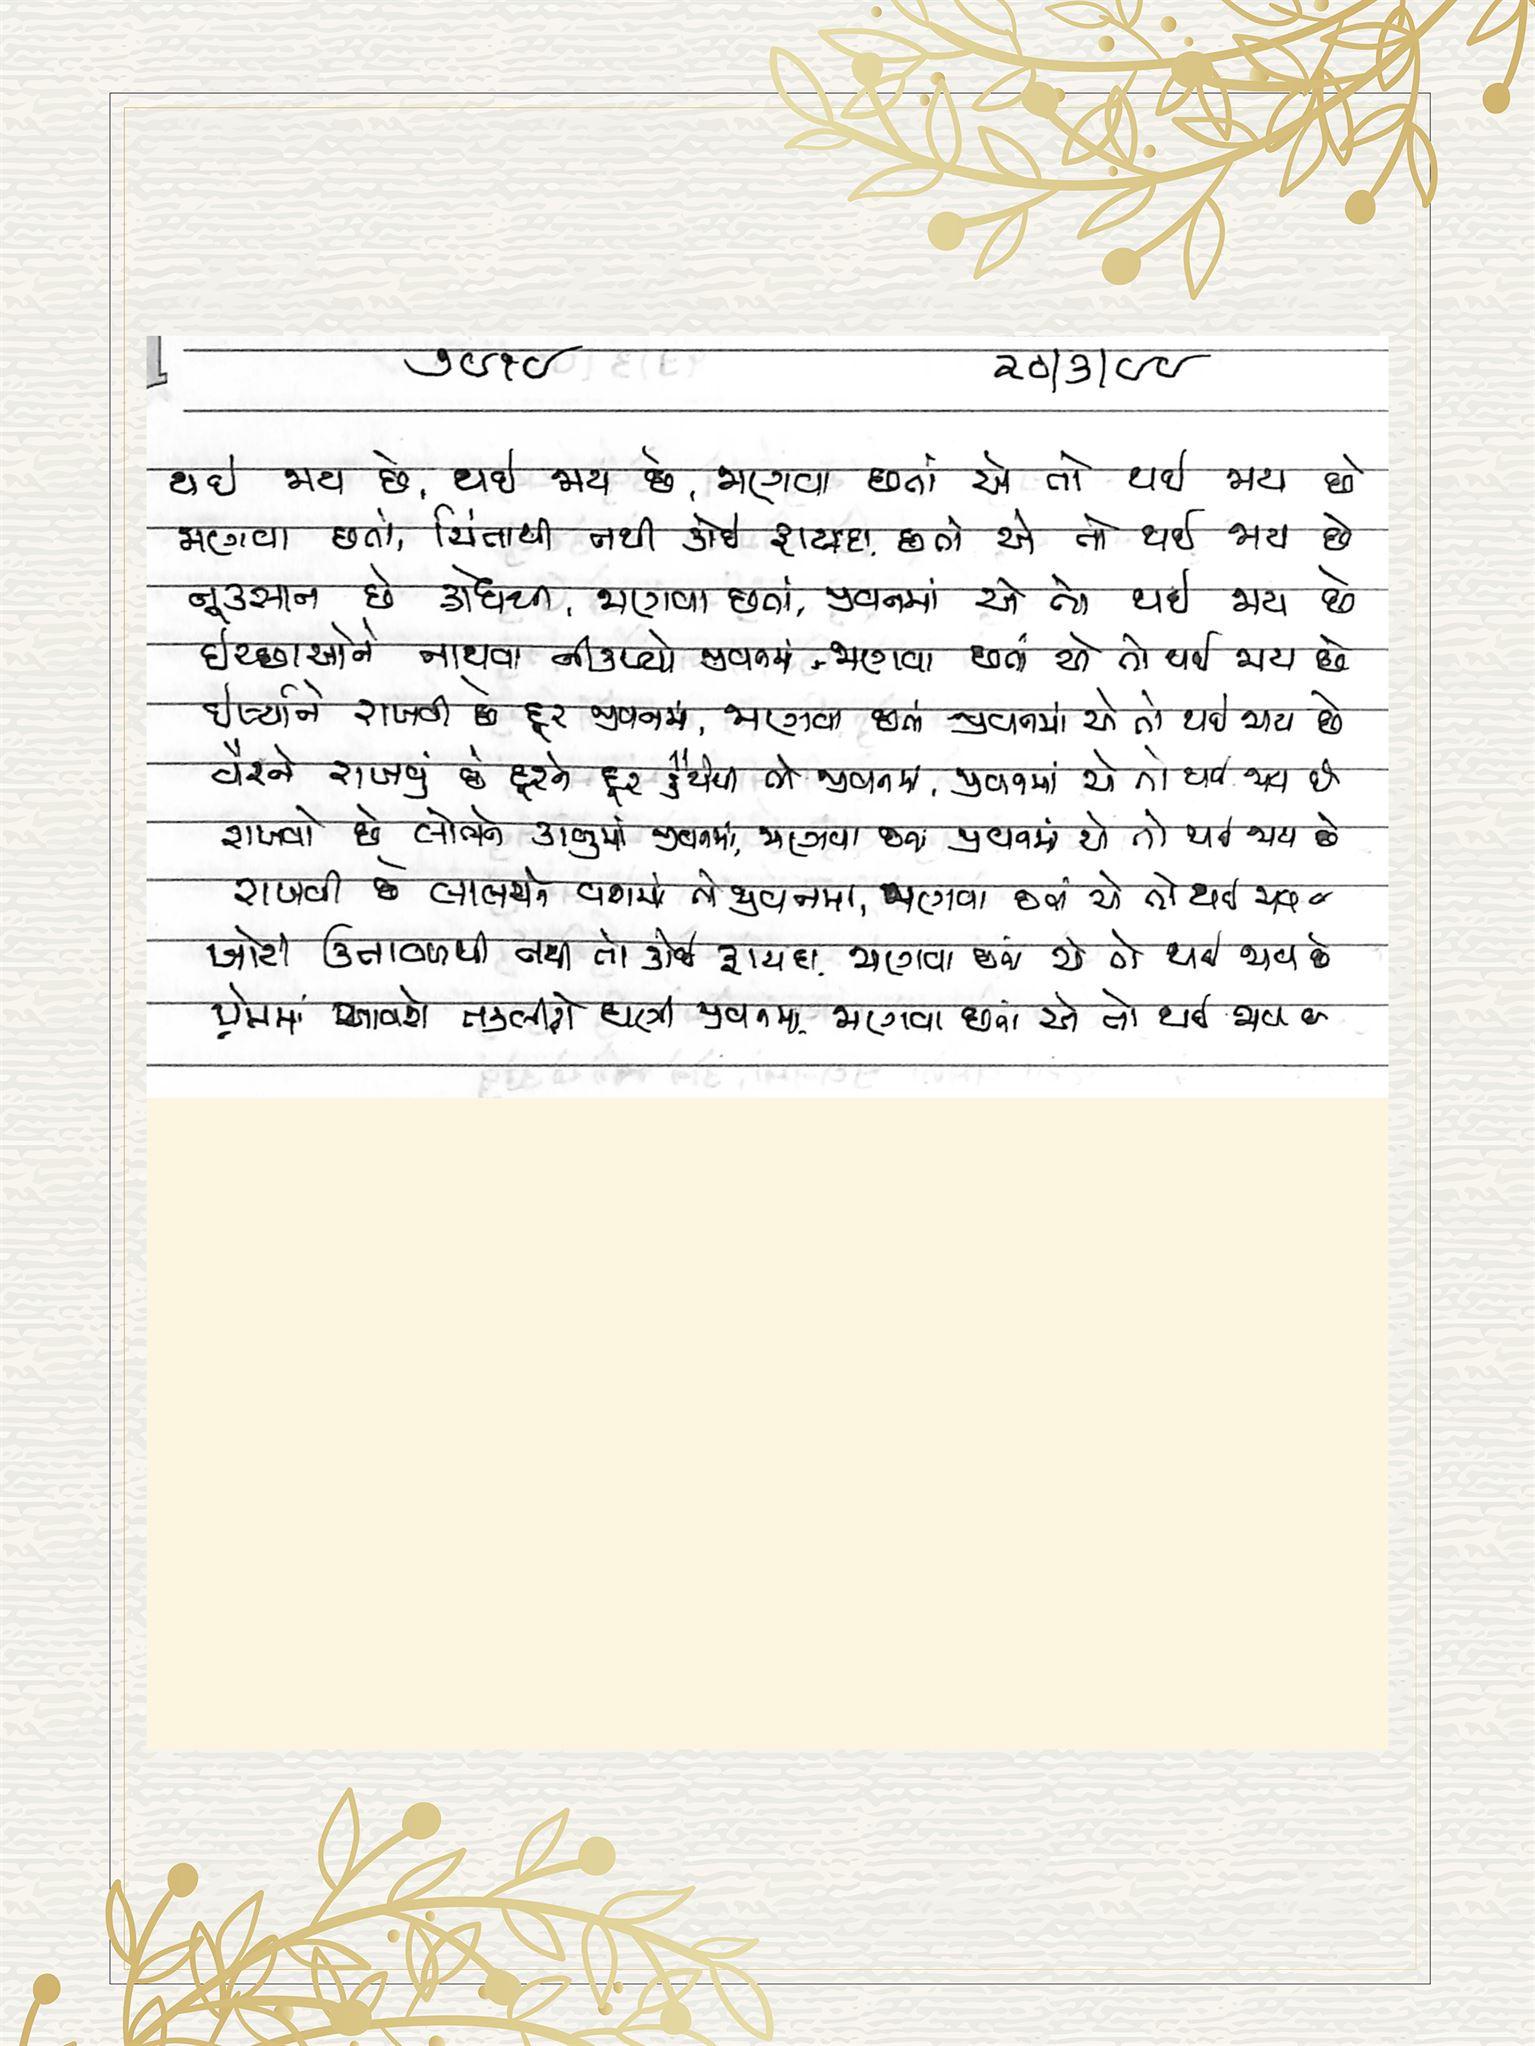 ૭૯૧૯ ૨૦/૩/૯૯
થઈ જાય છે, થઈ જાય છે, જાણવા છતાં એ તો થઈ જાય છે
જાણવા છતાં, ચિંતાથી નથી કોઈ ફાયદા, છતાં એ તો થઈ જાય છે
નૂકસાન છે ક્રોધથી, જાણવા છતાં, જીવનમાં એ તો થઈ જાય છે
ઈચ્છાઓને નાથવા નીકળ્યો જીવનમાં, જાણવા છતાં એ તો થઈ જાય છે
ઈર્ષ્યાને રાખવી છે દૂર જીવનમાં, જાણવા છતાં જીવનમાં એ તો થઈ જાય છે
વૈરને રાખવું છે દૂરને દૂર હૈયેથી તો જીવનમાં, જીવનમાં એ તો થઈ જાય છે
રાખવો છે લોભને કાબુમાં જીવનમાં, જાણવા છતાં જીવનમાં એ તો થઈ જાય છે
રાખવી છે લાલચને વશમાં તો જીવનમાં, જાણવા છતાં એ તો થઈ જાય છે
ખોટી ઉતાવળથી નથી તો કોઈ ફાયદા, જાણવા છતાં એ તો થઈ જાય છે
પ્રેમમાં આવશે તકલીફો ઘણી જીવનમાં, જાણવા છતાં એ તો થઈ જાય છે